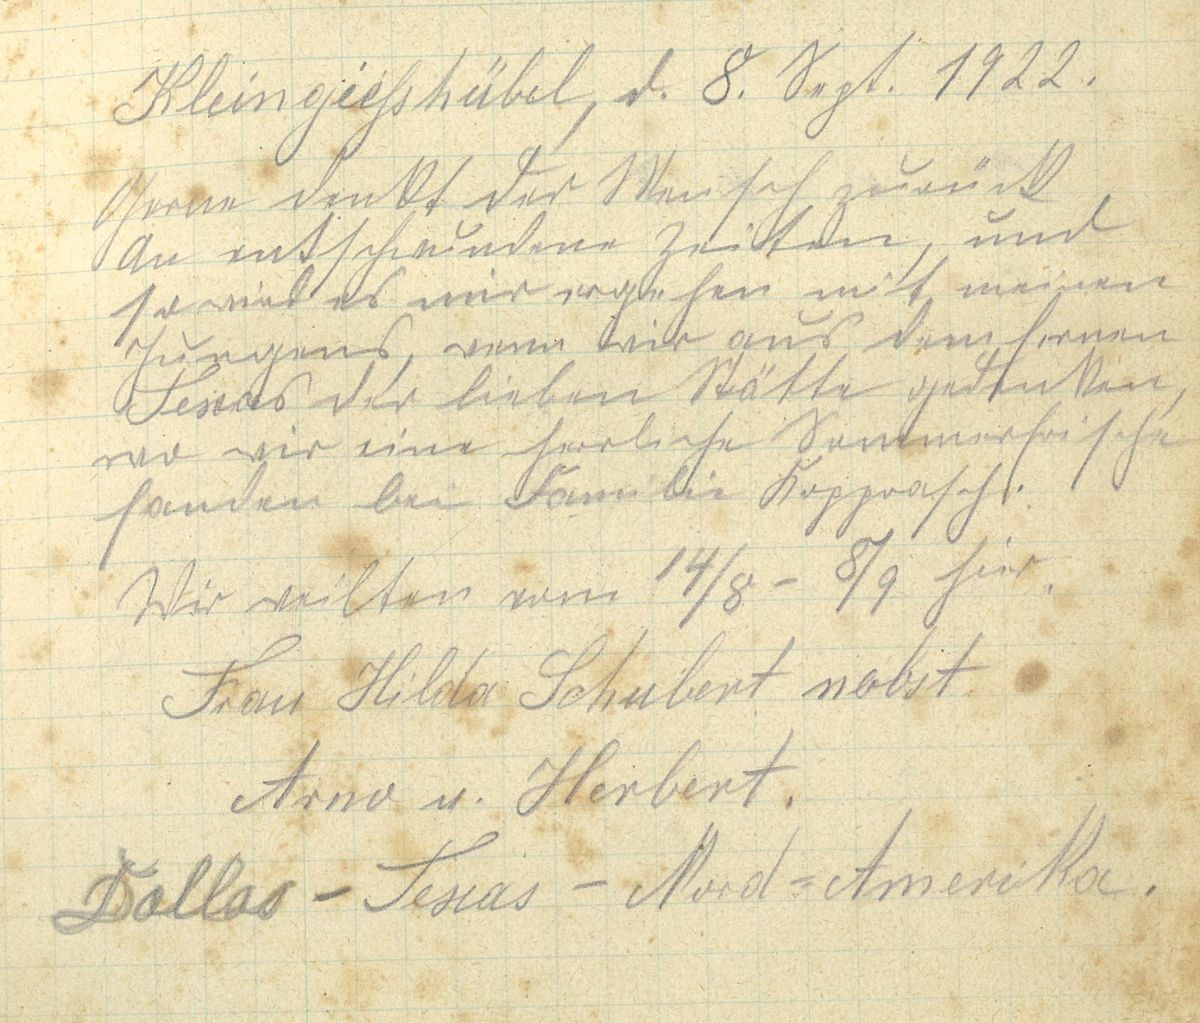 Kleingiesshübel, d. 8. Sept. 1922.
Gerne denkt der Mensch zurück
an entschwundene Zeiten, und
so wird es mir ergehen mit meinen
Jungens, wenn wir aus dem fernen
Texas der lieben Stätte gedenken,
wo wir eine herrliche Sommerfrische
fanden bei Familie Kopprasch.
Wir weilten vom 14/8 - 8/9 hier.
Frau Hilda Schubert nebst
Arno u. Herbert.
Dallas - Texas - Nord=Amerika.